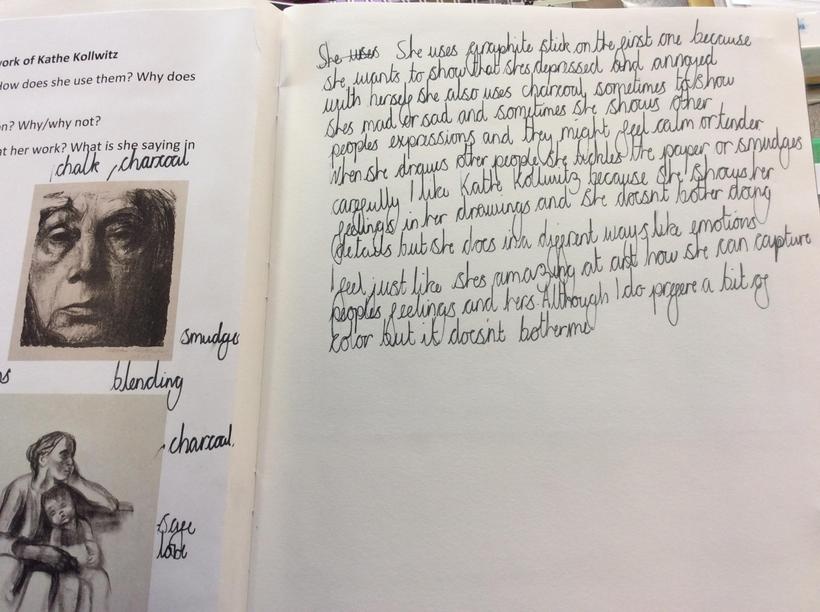 work of Kathe Kollwitz
How does she use them? Why does
n? Why/why not?
at her work? What is she saying in
chalk , charcoal
smudge
blending
charcoal
She uses She uses graphite stick on the first one because
she wants to show that shes depressed and annoyed
with herself she also uses charcoal sometimes to show
shes mad or sad and sometimes she shows other
peoples expressions and they might feel calm or tender
When she draws other people she tickles the paper or smudges
carefully I like Kathe Kollwitz because she shows her
feelings in her drawings and she doesnt bother doing
details but she does in a different ways like emotions
I feel just like shes amazing at art how she can capture
peoples feelings and hers Although I do prefere a bit of
color but it doesnt bother me